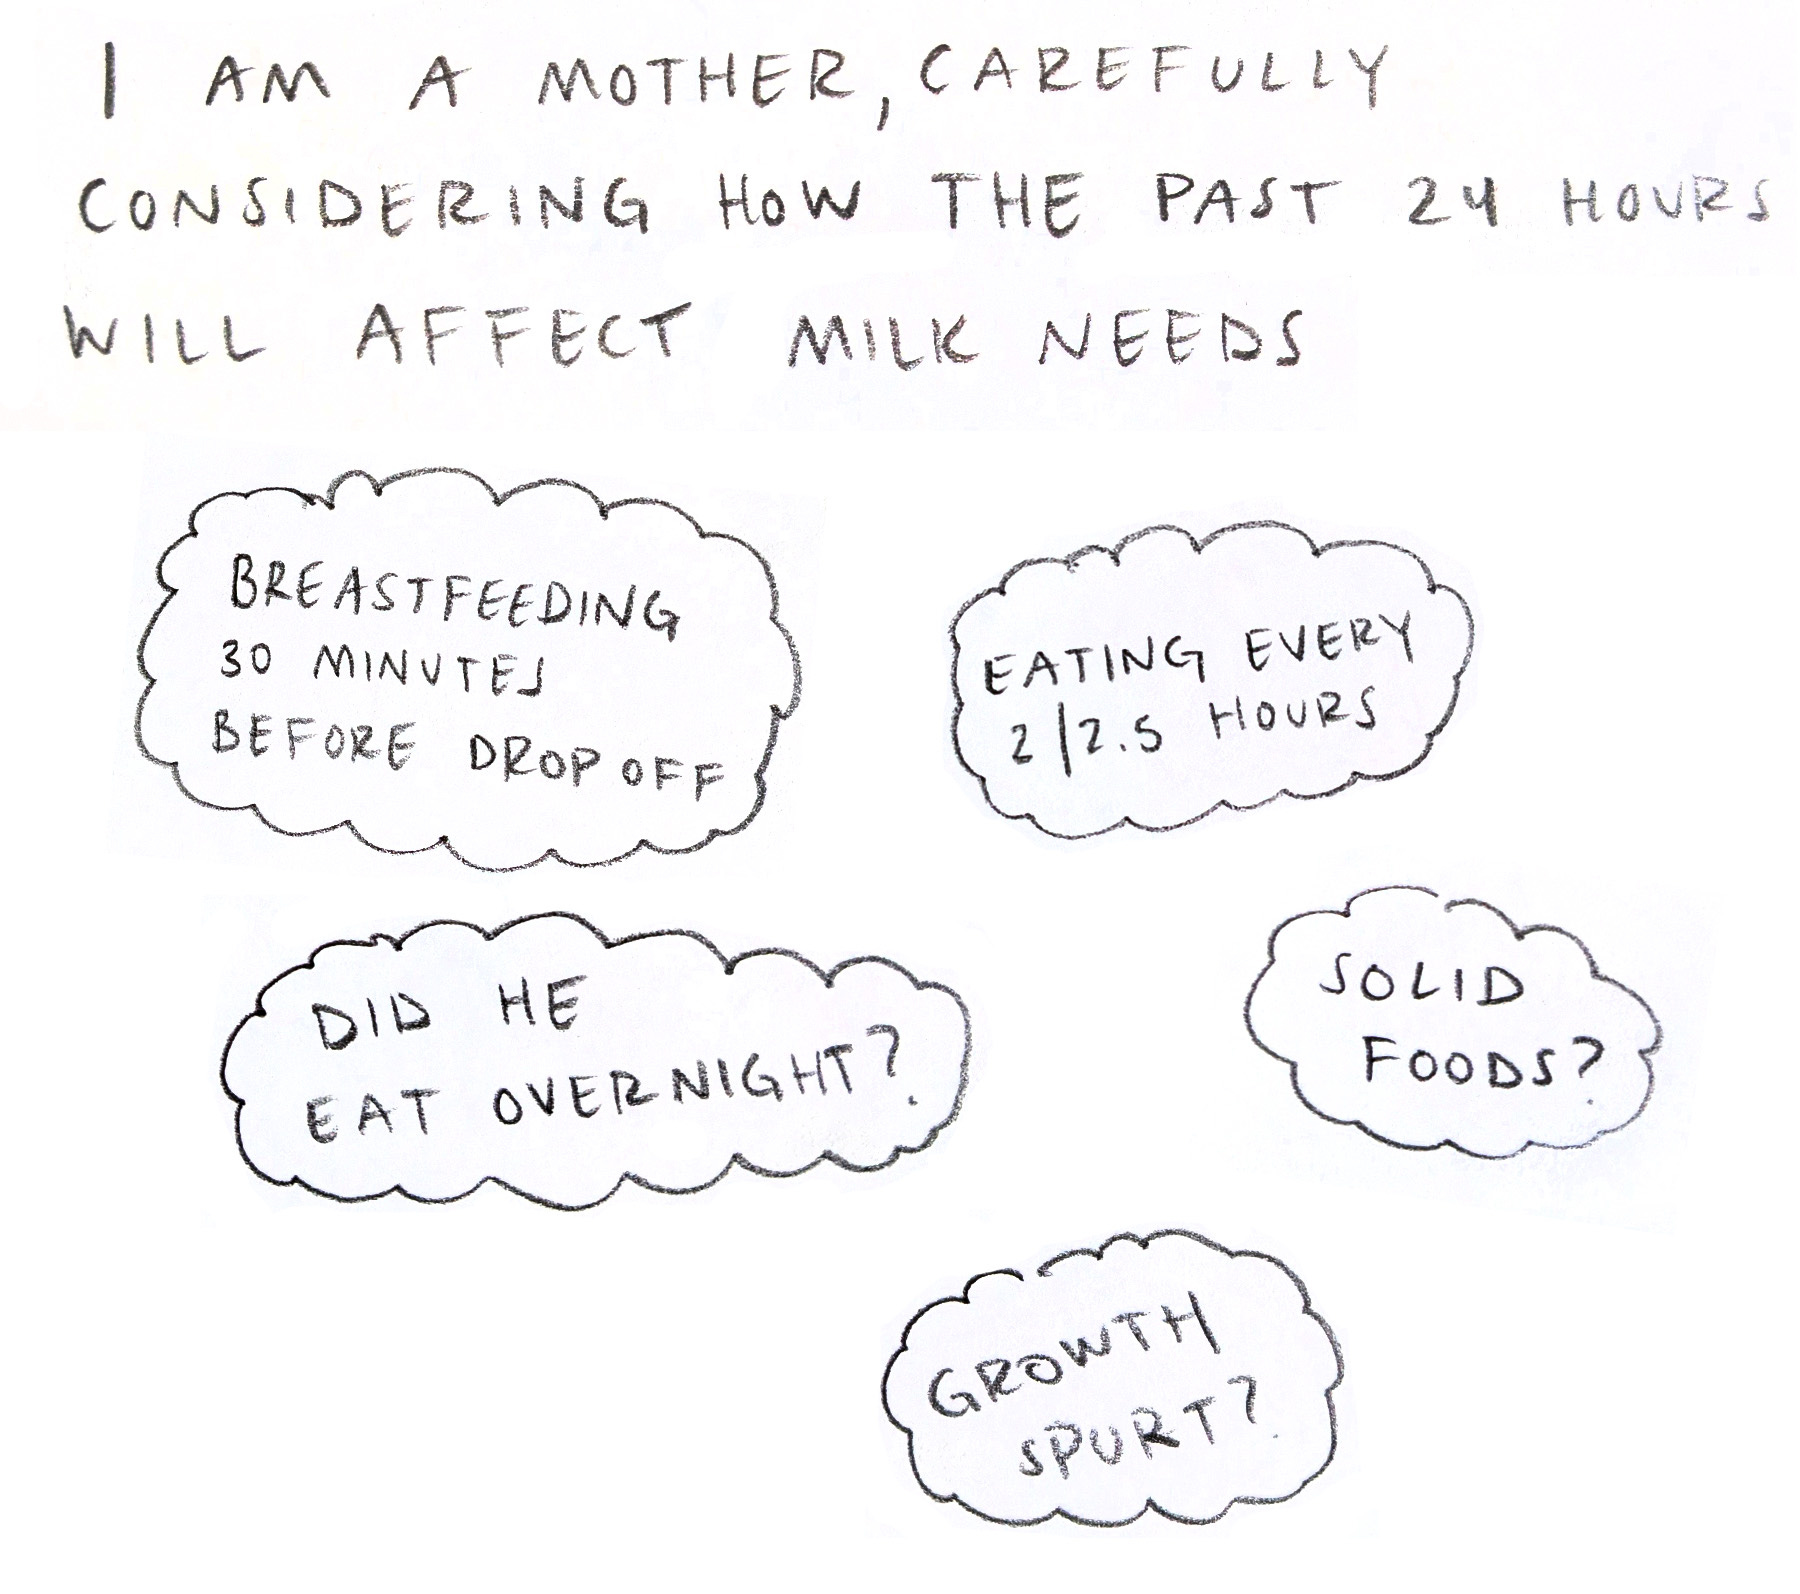 I AM A MOTHER, CAREFULLY
CONSIDERING HOW THE PAST 24 HOURS
WILL AFFECT MILK NEEDS
BREASTFEEDING
30 MINUTES
BEFORE DROP OFF
EATING EVERY
2/2.5 HOURS
DID HE
EAT OVERNIGHT?
SOLID
FOODS?
GROWTH
SPURT?